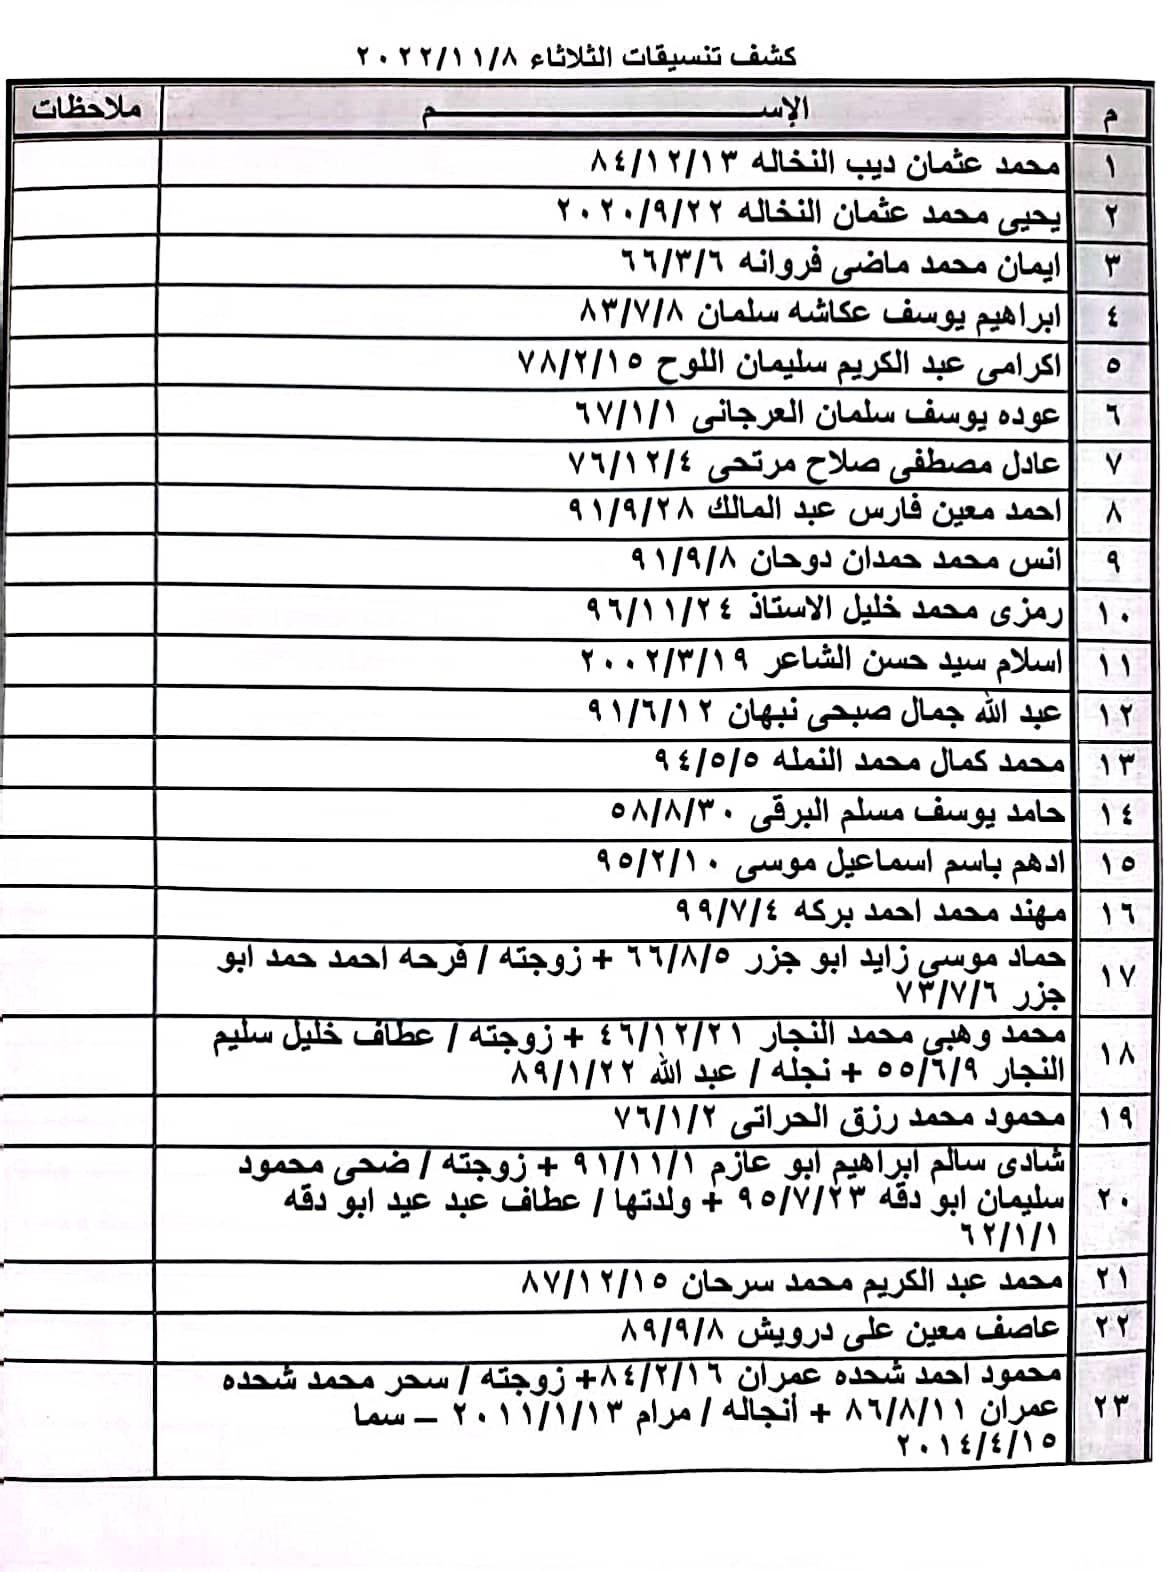 كشف تنسيقات الثلاثاء ٢٠٢٢/١١/٨
م الإســـــــم ملاحظات
١ محمد عثمان ديب النخاله ٨٤/١٢/١٣
٢ يحيى محمد عثمان النخاله ٢٠٢٠/٩/٢٢
٣ ايمان محمد ماضى فروانه ٦٦/٣/٦
٤ ابراهيم يوسف عكاشه سلمان ٨٣/٧/٨
٥ اكرامى عبد الكريم سليمان اللوح ٧٨/٢/١٥
٦ عوده يوسف سلمان العرجانى ٦٧/١/١
٧ عادل مصطفى صلاح مرتجى ٧٦/١٢/٤
٨ احمد معين فارس عبد المالك ٩١/٩/٢٨
٩ انس محمد حمدان دوحان ٩١/٩/٨
١٠ رمزى محمد خليل الاستاذ ٩٦/١١/٢٤
١١ اسلام سيد حسن الشاعر ٢٠٠٢/٣/١٩
١٢ عبد الله جمال صبحى نبهان ٩١/٦/١٢
١٣ محمد كمال محمد النمله ٩٤/٥/٥
١٤ حامد يوسف مسلم البرقى ٥٨/٨/٣٠
١٥ ادهم باسم اسماعيل موسى ٩٥/٢/١٠
١٦ مهند محمد احمد بركه ٩٩/٧/٤
١٧ حماد موسى زايد ابو جزر ٦٦/٨/٥ + زوجته / فرحه احمد حمد ابو
جزر ٧٣/٧/٦
١٨ محمد وهبى محمد النجار ٤٦/١٢/٢١ + زوجته / عطاف خليل سليم
النجار ٥٥/٦/٩ + نجله / عبد الله ٨٩/١/٢٢
١٩ محمود محمد رزق الحراتى ٧٦/١/٢
٢٠ شادى سالم ابراهيم ابو عازم ٩١/١١/١ + زوجته / ضحى محمود
سليمان ابو دقه ٩٥/٧/٢٣ + ولدتها / عطاف عبد عيد ابو دقه
٦٢/١/١
٢١ محمد عبد الكريم محمد سرحان ٨٧/١٢/١٥
٢٢ عاصف معين على درويش ٨٩/٩/٨
٢٣ محمود احمد شحده عمران ٨٤/٢/١٦+ زوجته / سحر محمد شحده
عمران ٨٦/٨/١١ + أنجاله / مرام ٢٠١١/١/١٣ – سما
٢٠١٤/٤/١٥